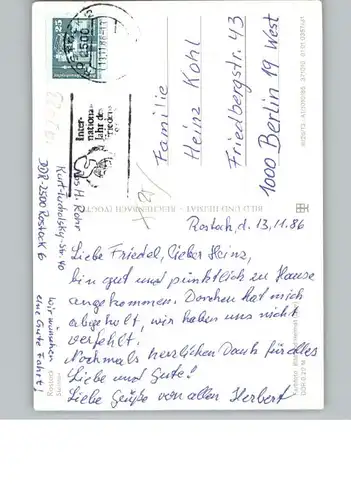 Rostock, d. 13.11.86
Liebe Friedel, lieber Heinz,
bin gut und pünktlich zu Hause
angekommen. Dorchen hat mich
abgeholt, wir haben uns nicht
verfehlt.
Nochmals herzlichen Dank für alles
Liebe und Gute!
Liebe Grüße von allen Herbert
Familie
Heinz Kohl
Friedbergstr. 43
1000 Berlin 19 West
Abs. H. Rohr
Kurt-Tucholsky-Str. 40
DDR-2500 Rostock 6
Wir wünschen
eine Gute Fahrt!
25
2500
Inter-
nationa-
Jahr des
Friedens
BILD UND HEIMAT REICHENBACH (VOGTL
Rostock